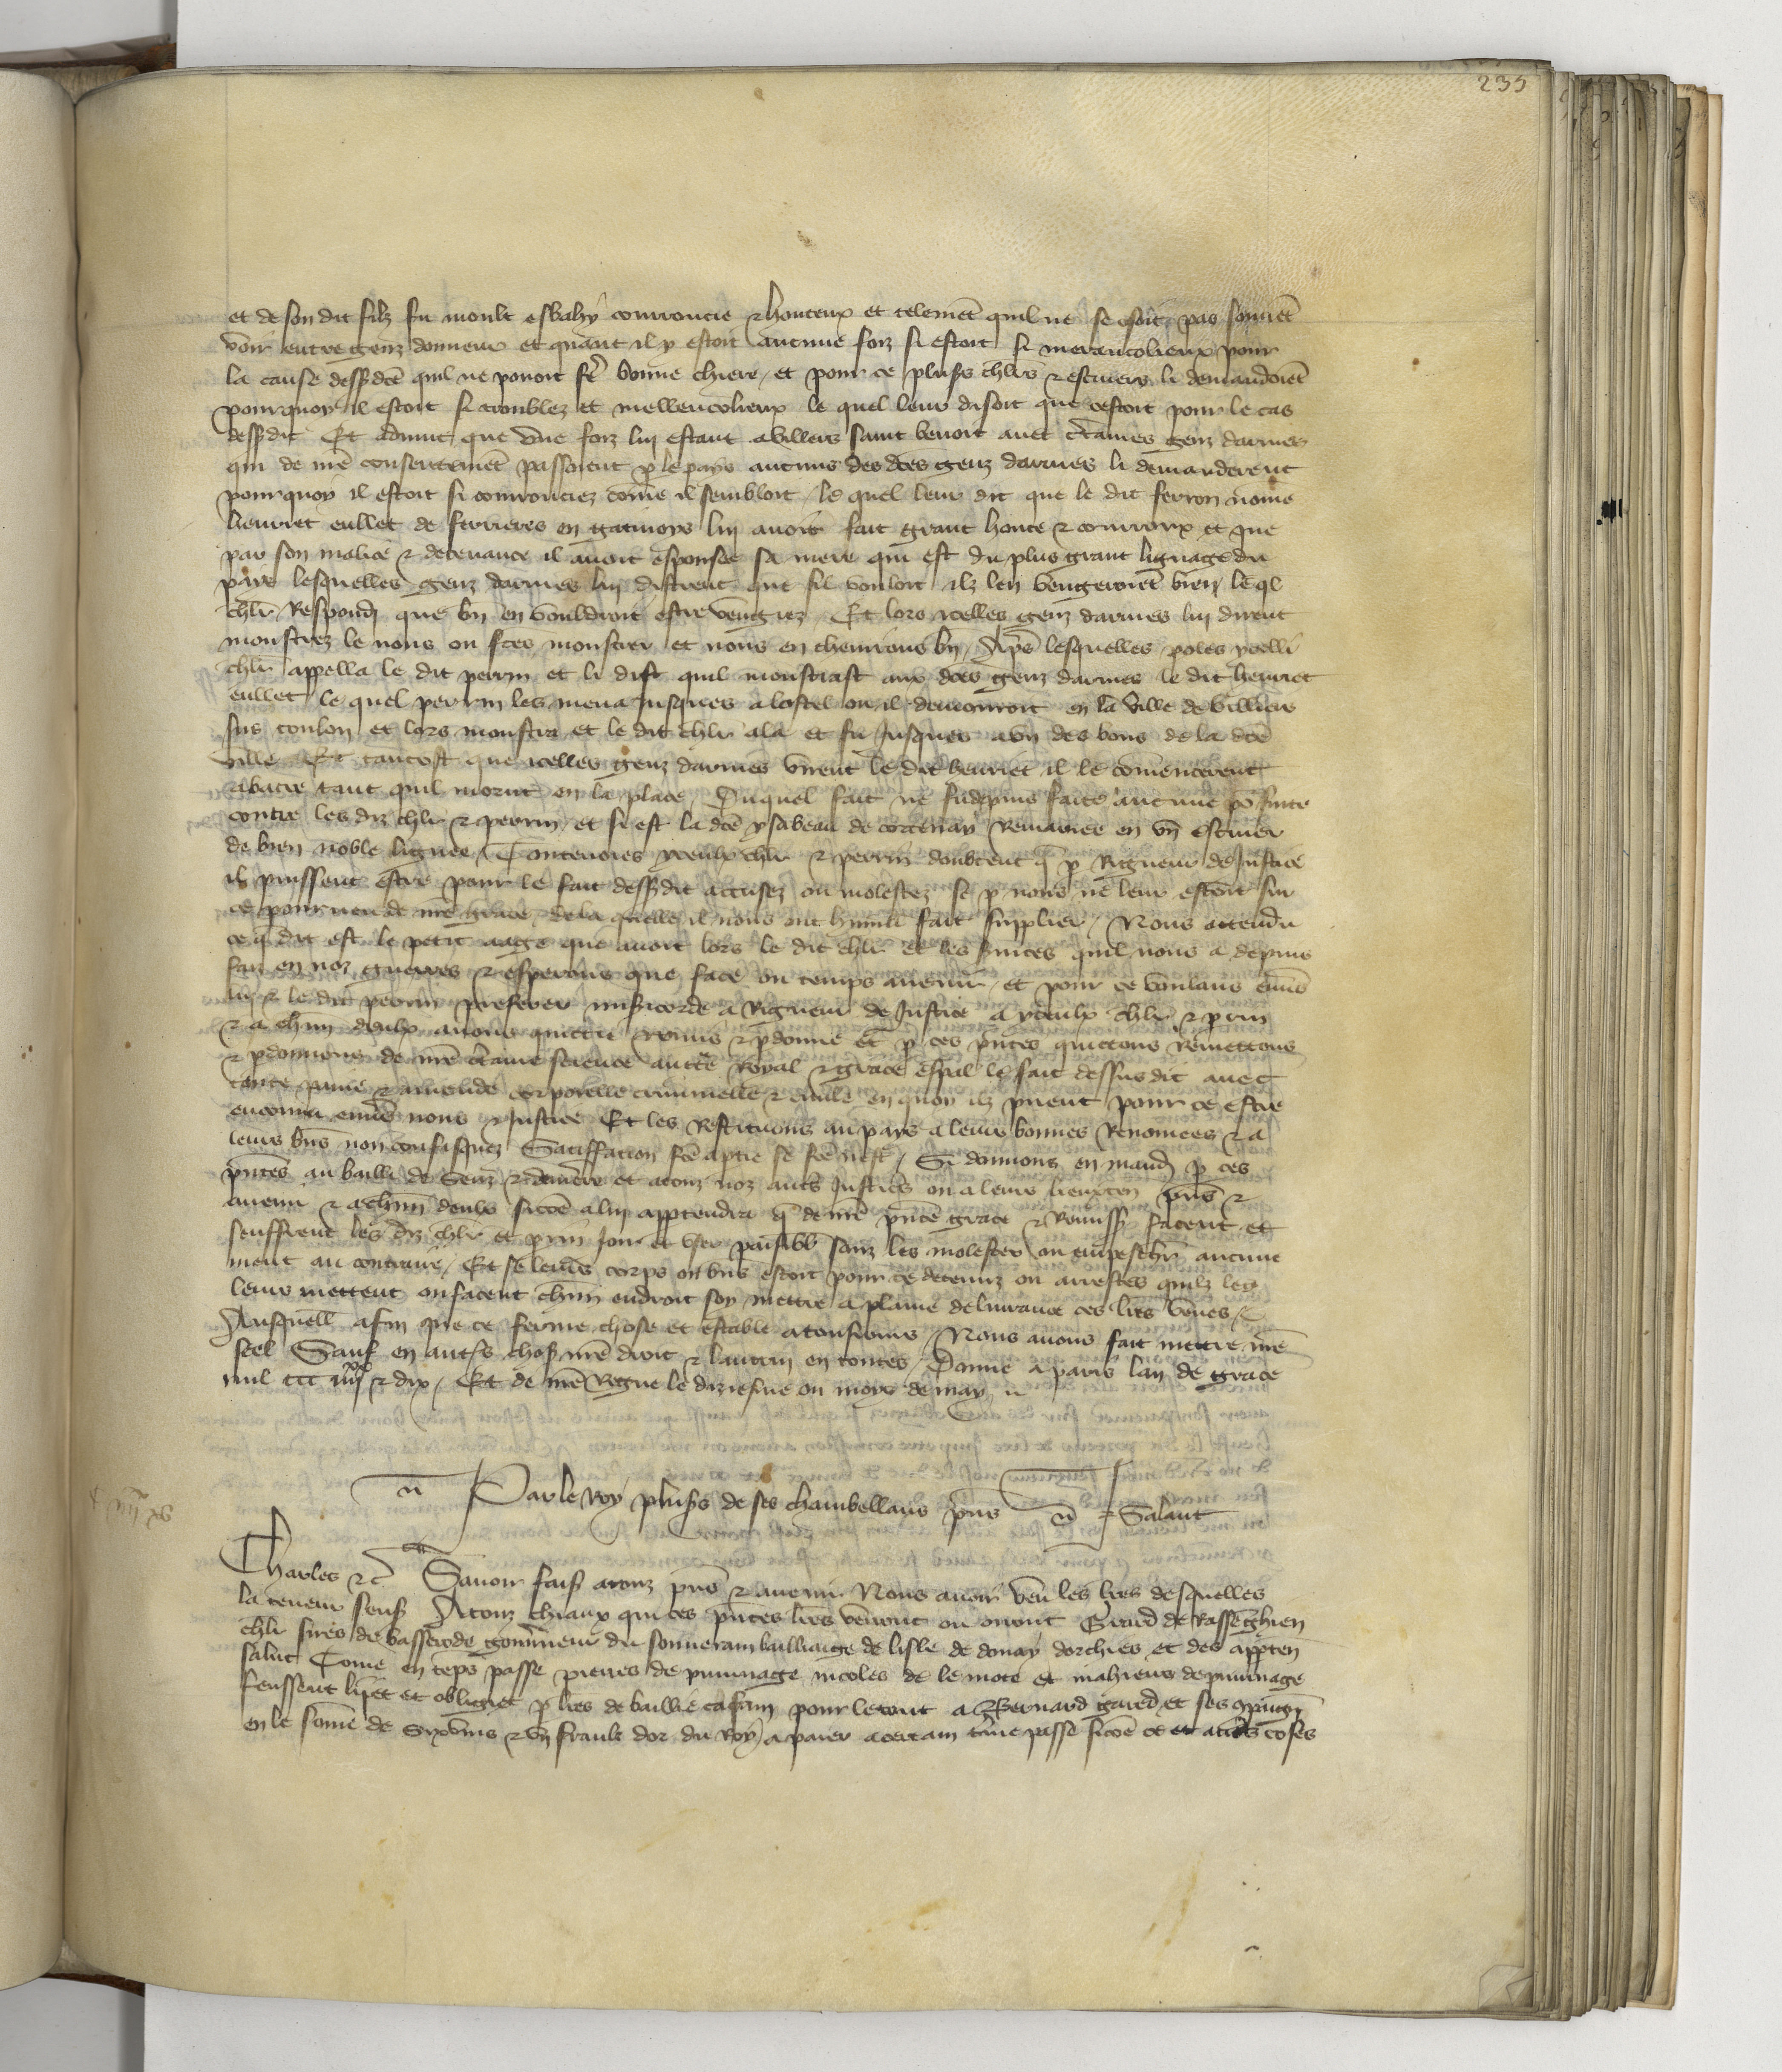 235
et de son dit filz fu moult esbahy courroucie & honteux et telemēt quil ne se osoit pas souuēt
veoir entre genz donneur et quant il y estoit aucune foiz si estoit si merancolieux pour
la cause dessdcē quil ne pouoit fē bonne chiere / et pour ce plus̄s chlrs & escuiers li demandoiēt
pourquoy il estoit si troublez et mellencolieux le quel leur disoit que cestoit pour le cas
dessdit Et aduint que vne foiz lui estant a villers saint benoit auec c̄taines genz darmes
qui de nrē consentemēt passoient p̄ le pays aucuns des dcēs genz darmes li demanderent
pourquoy il estoit si courrouciez com̄e il sembloit / le quel leur dit que le dit ferron nom̄e
henriet eullet de ferrieres en gatinoys lui auoit fait grant honte & courroux et que
par son malice & deceuance il auoit espousee sa mere qui est du plus grant lignage du
pays lesquelles genz darmes lui distrent que sil vouloit ilz len vengeroiēt bien / leql̄
chlr̄ Respondi que bn̄ en vouldroit estre vengiez / Et lors icelles genz darmes lui dirent
monstrez le nous ou fctes monstrer et nous en cheuirons bn̄ / Ap̄s lesquelles poles ycelli
chlr̄ appella le dit perrin et li dist quil monstrast aux dcēs genz darmes le dit henriet
eullet / le quel perrin les mena Jusques a lostel ou il demouroit en la ville de villiers
sus toulon et lors monstra et le dit chlr̄ ala et fu Jusques a vn des bons de la dcē
ville Et tantost que icelles genz darmes virent le dit henriet il le com̄encerent
a batre tant quil morut en la place / Duquel fait ne fu depuis faite aucune p̄ suite
contre les diz chlr̄ & perrin / et si est la dcē ysabeau de cortenay Remariee en vn̄ escuier
de bien noble lignee / Toutesuoies yceulx chlr̄ & perrin doubtent q̄ p̄ Rigueur de Justice
il puissent estre pour le fait dessdit accusez ou molestez se p̄ nous ne leur estoit sur
ce pourueu de nrē grace / de la quelle il nous ont humbl̄ fait supplier / Nous attendu
ce q̄ dit est le petit aage que auoit lors le dit chlr̄ et les s̄uices quil nous a depuis
faiz en noz guerres & esperons que face ou temps auenir / et pour ce voulans enu̅s
lui & le dit perrin preferer mis̄icorde a Rigueur de Justice a yceulx chlr̄ & p̄rin
& a ch̄un deulx auons quittie Remis & p̄donne et p̄ ces p̄ntes quittons Remettons
& p̄donnons de nrē c̄taine science auctē Royal & grace esp̄al le fait dessus dit auec
toute peine & amende corporelle criminelle & ciuile en quoy ilz peuent pour ce estre
encouru enuēs nous & Justice Et les Restituons au pays a leurs bonnes Renom̄ees & a
leurs bn̄s non confisquez Satiffation fcē a ptie se fcē nest / Si donnons en mand̄ p̄ ces
p̄ntes au bailli de Senz & dauc̄erre et a touz noz autrs Justic̄es ou a leurs lieuxten p̄ns &
auenir & a ch̄un deulx sicōe a lui appartendra q̄ de nrē p̄nte grace & Remiss̄ facent et
seuffrent les diz chlr̄ et p̄rin Joir et vser paisibl̄ sanz les molester ou empeschr̄ aucune
ment au contraire / Et se leurs corps ou bn̄s estoit pour ce detenuz ou arrestes quilz les
leurs mettent ou facent ch̄un endroit soy mettre a plaine deliurance ces lr̄es veues /
Ausquell̄ afin que ce ferme chose et estable a tousiours / Nous auons fait mettre nr̄e
scel Sauf en autrs chos̄ nrē droit & lautrui en toutes / Donne a paris lan de grace
mil ccc iiijxx & dix / Et de nrē Regne le diziesme ou moys de may
Par le Roy plus̄s de ses chambellans p̄ns Salaut
Charles &c Sauoir fais̄ a touz p̄ns & auenir Nous auoir veu les lr̄es desquelles
la teneur sens̄ A touz chiaux qui ces p̄ntes lr̄es verront ou orront Gerard de Rasseghien
chlr̄ sires de basserode gouu̅neur du souuerain bailliaige de lisle de douay dorchies et des apptēn
salut Com̄e en tēps passe pierres de pruuinage nicoles de le mote et mahieus de pruuinage
feussent lyet et obligiet p̄ lr̄es de baillie cascun pour le tout a Bernard gared et ses 9paign̄
en le som̄e de Sixvins & vn̄ frans dor du Roy / a paier a certain t̄me passe sicōe ce et autrēs coses